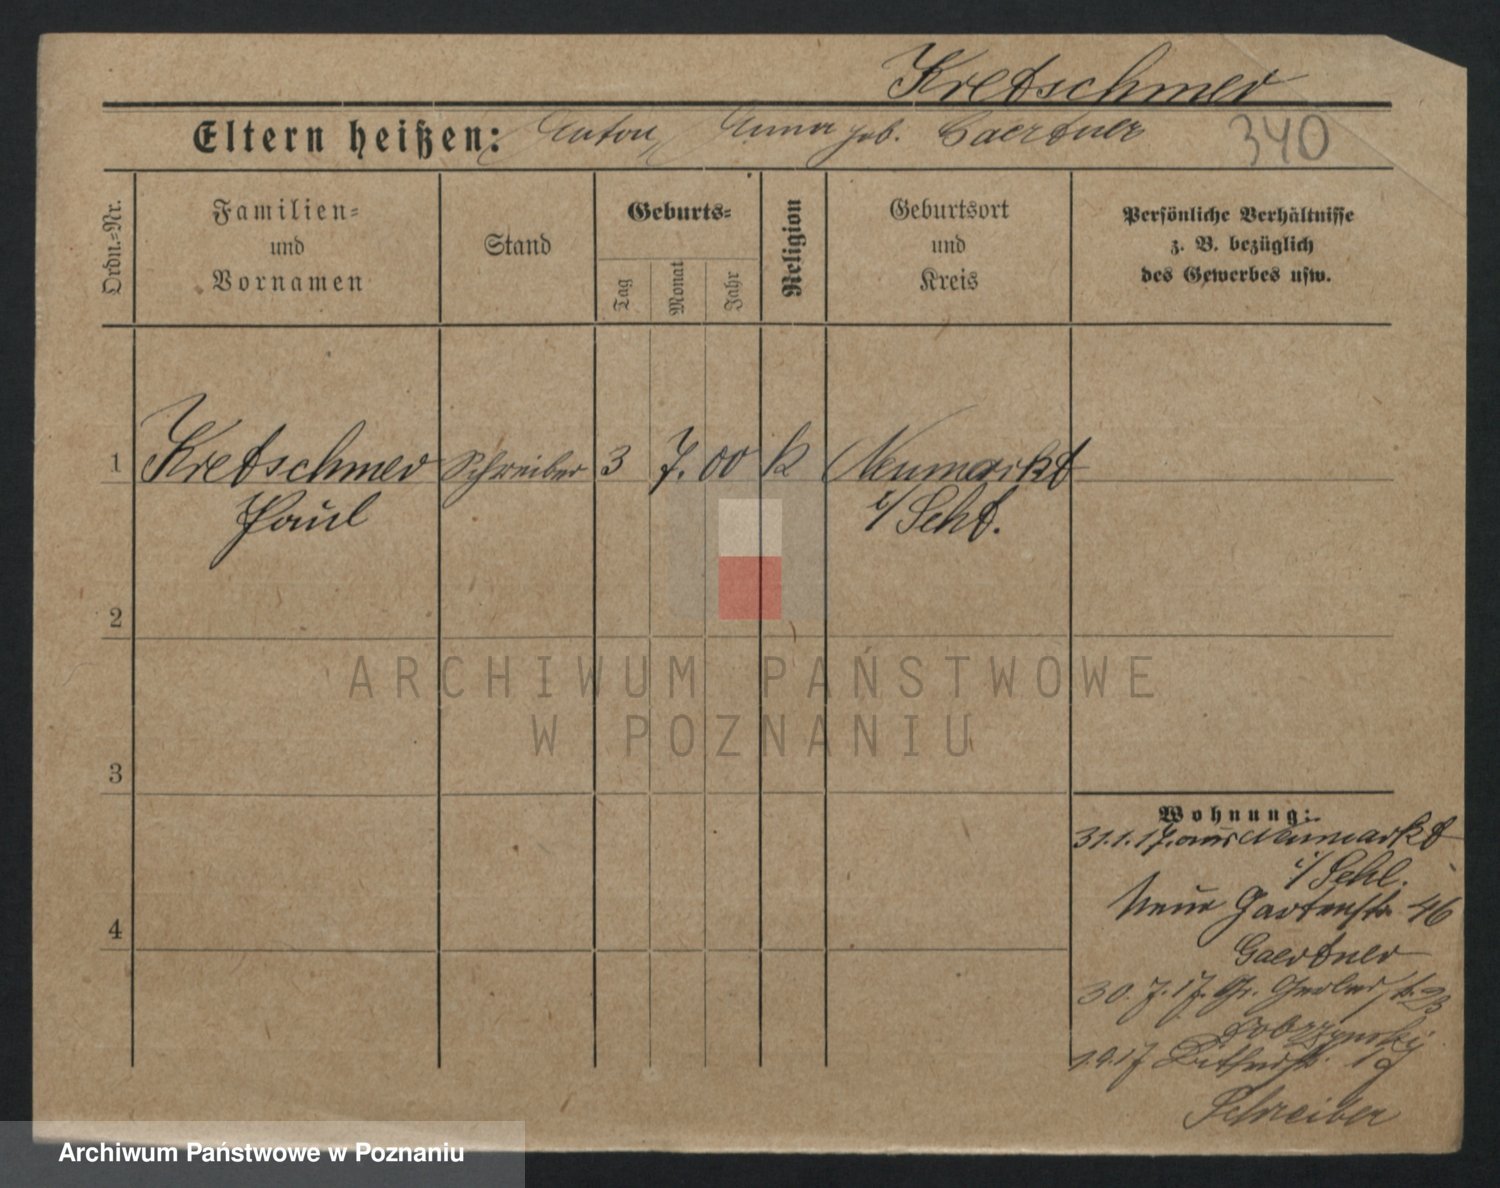 Kretschmer
Eltern heißen: Anton, Anna geb. Gaertner 340
Ordn.=Nr.
Familien=
und
Vornamen
Stand
Geburts=
Tag
Monat
Jahr
Religion
Geburtsort
und
Kreis
Persönliche Verhältnisse
z. B. bezüglich
des Gewerbes usw.
1 Kretschmer Schreiber 3 7. 00 k Neumarkt
Paul i/Schl.
2
3
4
Wohnung:
31.1.17. aus Neumarkt
i/Schl.
Neue Gartenstr. 46
Gaertner
30.7.17. Gr. Gerberstr. 23
Dobrzynski
1.9.17 19
Schreiber
ARCHIWUM PAŃSTWOWE
W POZNANIU
Archiwum Państwowe w Poznaniu